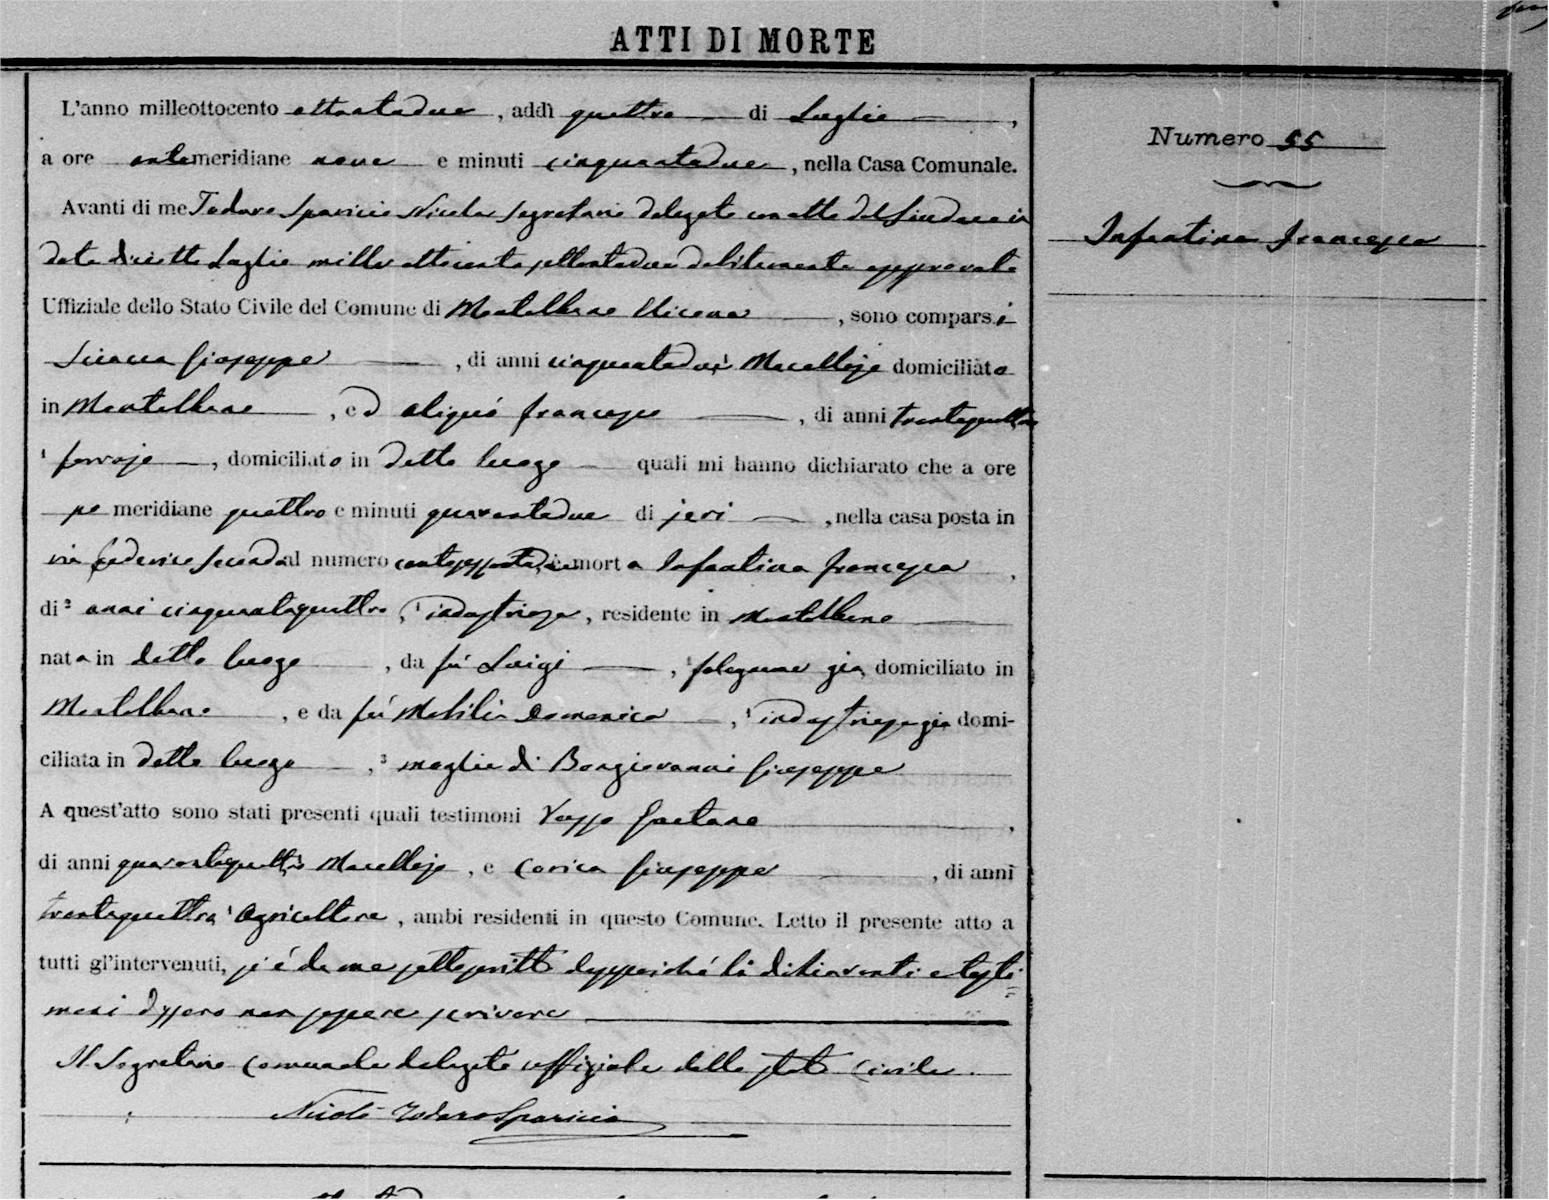 ATTI DI MORTE
L'anno milleottocento ottantadue, addì quattro di Luglio,
a ore antemeridiane nove e minuti cinquantadue, nella Casa Comunale.
Avanti di me Todaro Sparicio Nicolò Segretario delegato con atto del Sindaco in
data Luglio mille ottocento ottantadue debitamente approvato
Uffiziale dello Stato Civile del Comune di Montalbano Elicona, sono comparsi
Sciacca Giuseppe, di anni cinquantadue Macellajo domiciliato
in Montalbano, ed Aliquò Francesco, di anni trentaquattro
1 ferrajo, domiciliato in detto luogo quali mi hanno dichiarato che a ore
po meridiane quattro e minuti quarantadue di jeri, nella casa posta in
via Federico Secondo al numero è morta Infantino Francesca,
di 2 anni cinquantaquattro, 1 industriosa, residente in Montalbano
nata in detto luogo, da fu Luigi, 1 falegname già domiciliato in
Montalbano, e da fu Mobilia Domenica, 1 industriosa già domi-
ciliata in detto luogo, 3 moglie di Bongiovanni Giuseppe
A quest'atto sono stati presenti quali testimoni Gaetano,
di anni quarantaquattro Macellajo, e Corica Giuseppe, di anni
trentaquattro 1 Agricoltore, ambi residenti in questo Comune. Letto il presente atto a
tutti gl'intervenuti, si è da me sottoscritto dappoiché li dichiaranti e testi=
moni dissero non sapere scrivere
Il Segretario Comunale delegato uffiziale dello stato Civile
Nicolò Todaro Sparicio
Numero 55
Infantino Francesca